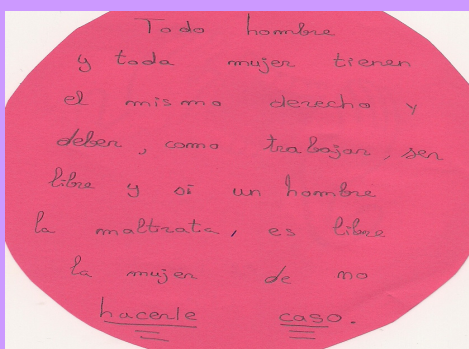 Todo hombre
y toda mujer tienen
el mismo derecho y
deber, como trabajar, ser
libre y si un hombre
la maltrata, es libre
la mujer de no
hacerle caso.